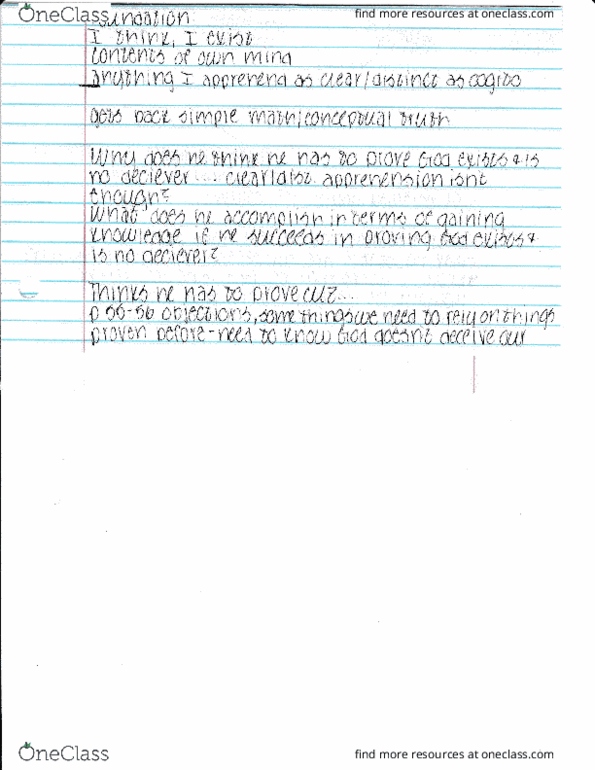 OneClass
find more resources at oneclass.com
undation
I think, I exist
contents of own mind
anything I apprehend as clear/distinct as cogito
gets back simple math/conceptual truth
Why does he think he has to prove God exists + is
no deciever .... clear/dist. apprehension isnt
enough?
What does he accomplish in terms of gaining
knowledge if he succeeds in proving God exists +
is no deciever?
Thinks he has to prove cuz...
p 55-56 objections, some things we need to rely on things
proven before - need to know God doesnt deceive our
OneClass
find more resources at oneclass.com